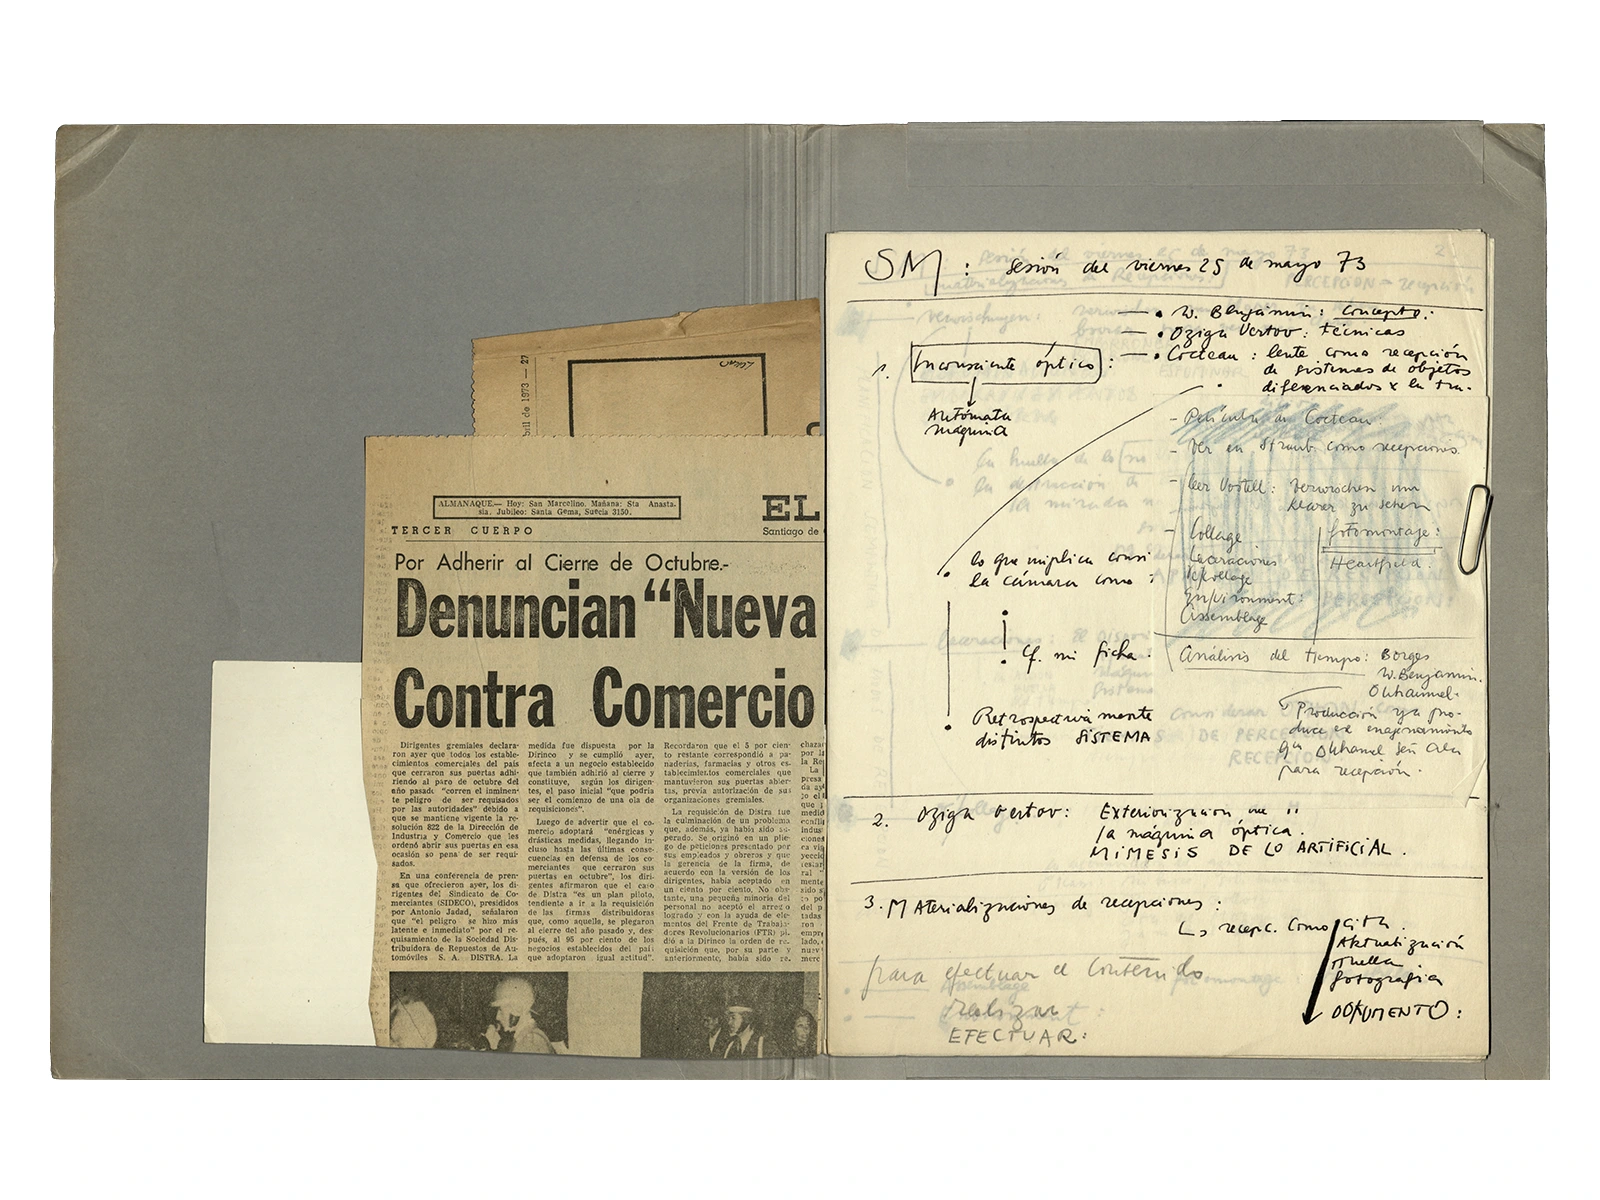 bril de 1973 — 27
ALMANAQUE.— Hoy: San Marcelino. Mañana: Sta Anasta-
sia. Jubileo: Santa Gema, Suecia 3150.
EL
TERCER CUERPO
Santiago de
Por Adherir al Cierre de Octubre.-
Denuncian “Nueva
Contra Comercio
Dirigentes gremiales declara-
ron ayer que todos los estable-
cimientos comerciales del país
que cerraron sus puertas adhi-
riendo al paro de octubre del
año pasado “corren el inminen-
te peligro de ser requisados
por las autoridades” debido a
que se mantiene vigente la re-
solución 822 de la Dirección de
Industria y Comercio que les
ordenó abrir sus puertas en esa
ocasión so pena de ser requi-
sados.
En una conferencia de pren-
sa que ofrecieron ayer, los di-
rigentes del Sindicato de Co-
merciantes (SIDECO), presididos
por Antonio Jadad, señalaron
que “el peligro se hizo más
latente e inmediato” por el re-
quisamiento de la Sociedad Dis-
tribuidora de Repuestos de Au-
tomóviles S. A. DISTRA. La
medida fue dispuesta por la
Dirinco y se cumplió ayer,
afecta a un negocio establecido
que también adhirió al cierre y
constituye, según los dirigen-
tes, el paso inicial “que podría
ser el comienzo de una ola de
requisiciones”.
Luego de advertir que el co-
mercio adoptará “enérgicas y
drásticas medidas, llegando in-
cluso hasta las últimas conse-
cuencias en defensa de los co-
merciantes que cerraron sus
puertas en octubre”, los diri-
gentes afirmaron que el caso
de Distra “es un plan piloto,
tendiente a ir a la requisición
de las firmas distribuidoras
que, como aquella, se plegaron
al cierre del año pasado y, des-
pués, al 95 por ciento de los
negocios establecidos del país
que adoptaron igual actitud”.
Recordaron que el 5 por cien-
to restante correspondió a pa-
naderías, farmacias y otros es-
tablecimientos comerciales que
mantuvieron sus puertas abier-
tas, previa autorización de sus
organizaciones gremiales.
La requisición de Distra fue
la culminación de un problema
que, además, ya había sido su-
perado. Se originó en un plie-
go de peticiones presentado por
sus empleados y obreros y que
la gerencia de la firma, de
acuerdo con la versión de los
dirigentes, había aceptado en
un ciento por ciento. No obs-
tante, una pequeña minoría del
personal no aceptó el arreglo
logrado y con la ayuda de ele-
mentos del Frente de Trabaja-
dores Revolucionarios (FTR) pi-
dió a la Dirinco la orden de re-
quisición que, por su parte y
anteriormente, había sido re-
SM : sesión del viernes 25 de mayo 73
• W. Benjamin: Concepto.
• Dziga Vertov: técnicas
1. Inconsciente óptico :
• Cocteau : lente como recepción
de sistemas de objetos
diferenciados x la tra-
Autómata
máquina
- Película de Cocteau.
- Ver en Straub como recepciones.
- Leer Vostell: Verwischen um
klarer zu sehen
- Collage
Laceraciones
Dekollage
Environment:
Assemblage
fotomontaje:
Heartfield.
• lo que implica consi
la cámara como :
• Cf. mi ficha.
• Retrospectivamente
distintos SISTEMA
Análisis del tiempo: Borges
W. Benjamin.
Duhamel.
Producción ya pro-
duce ex enajenamiento
que Duhamel señala
para recepción.
2. Dziga Vertov: Exteriorización de
la máquina óptica.
MIMESIS DE LO ARTIFICIAL.
3. Materializaciones de recepciones :
recepc. como cita.
Aktualización
Huella
fotografía
DOKUMENTO :
para efectuar el Contenido
realizar
EFECTUAR: